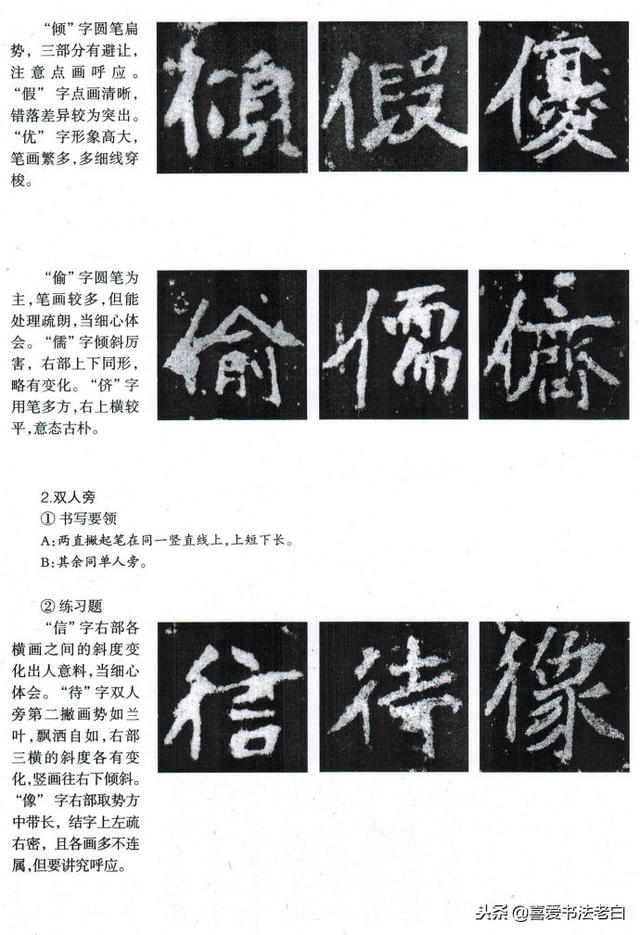 “倾”字圆笔扁
势，三部分有避让，
注意点画呼应。
“假”字点画清晰，
错落差异较为突出。
“优”字形象高大，
笔画繁多，多细线穿
梭。
傾 假 優
“偷”字圆笔为
主，笔画较多，但能
处理疏朗，当细心体
会。“儒”字倾斜厉
害，右部上下同形，
略有变化。“侪”字
用笔多方，右上横较
平，意态古朴。
偷 儒 儕
2.双人旁
①书写要领
A：两直撇起笔在同一竖直线上，上短下长。
B：其余同单人旁。
②练习题
“信”字右部各
横画之间的斜度变
化出人意料，当细心
体会。“待”字双人
旁第二撇画势如兰
叶，飘洒自如，右部
三横的斜度各有变
化，竖画往右下倾斜。
“像”字右部取势方
中带长，结字上左疏
右密，且各画多不连
属，但要讲究呼应。
信 待 像
头条@喜爱书法老白